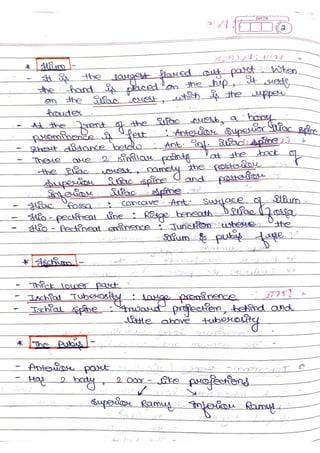 DATE
2
* Ilium -
- It is the largest flared out part. When
the hand is placed on the hip, it rests
on the iliac crest, which is the upper
border
- At the front of the iliac crest, a bony
prominence is felt : Anterior Superior Iliac Spine
- Short distance below : Ant. inf. Iliac spine
- There are 2 similar points at the back of
the iliac crest, namely the posterior
superior iliac spine and posterior
Inferior iliac spine
- Iliac fossa : Concave Ant. Surface of Ilium.
- Ilio-pectineal line : Ridge beneath Iliac fossa
- Ilio-Pectineal eminence : Junction where the
Ilium & pubis fuse.
* Ischium -
- Thick lower part
- Ischial Tuberosity : Large prominence
- Ischial Spine : Inward projection, behind and
little above tuberosity
* The Pubis -
- Anterior part
- Has 2 body, 2 oar-like projections
Superior Ramus Inferior Ramus.